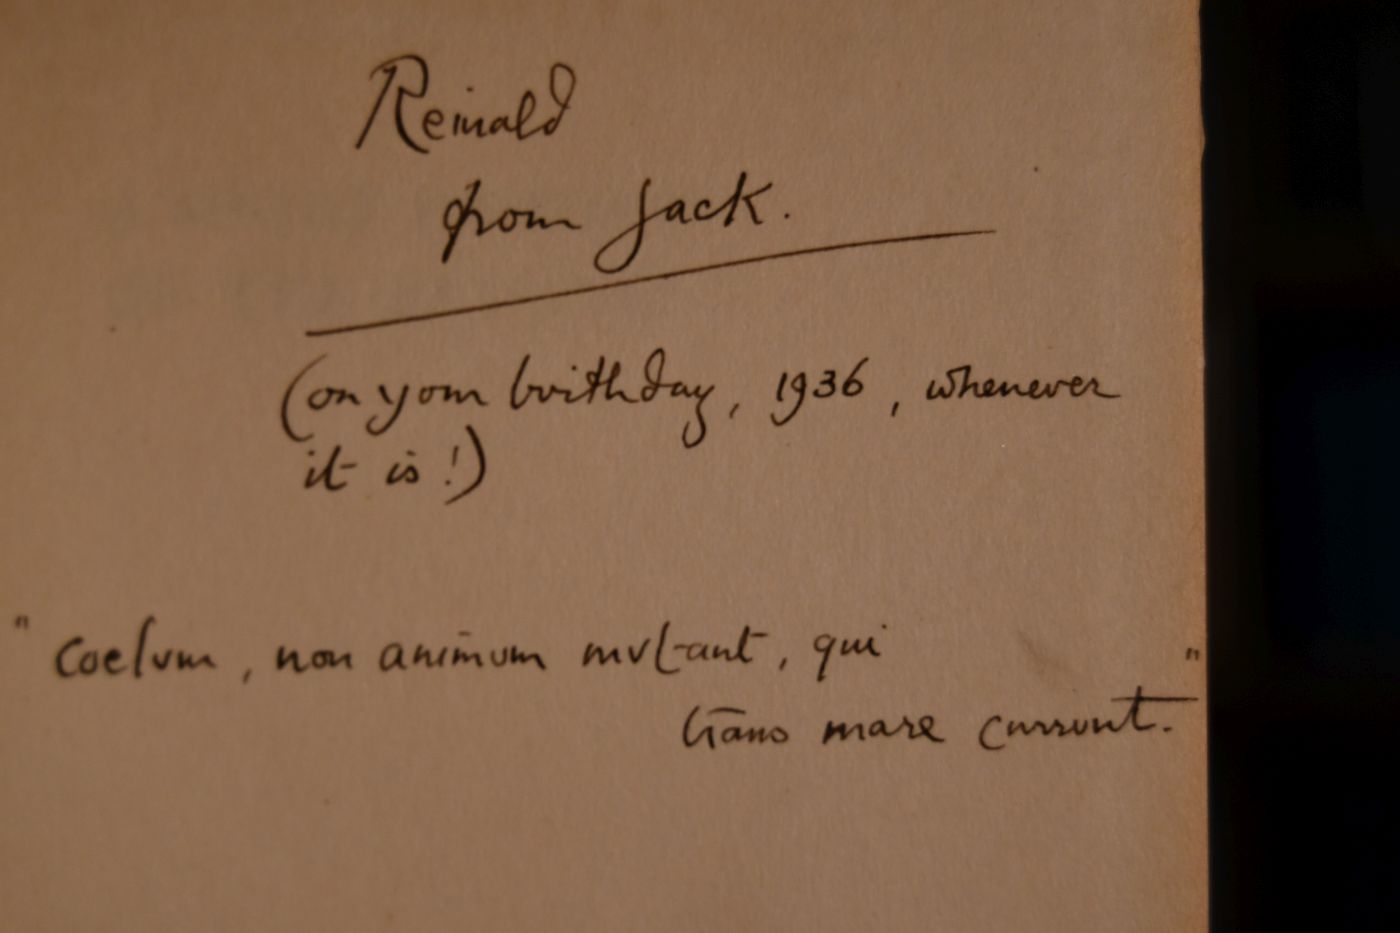 Reinald
from Jack.
(on your birthday, 1936, whenever
it is!)
"Coelum, non animum mutant, qui
trans mare currunt."